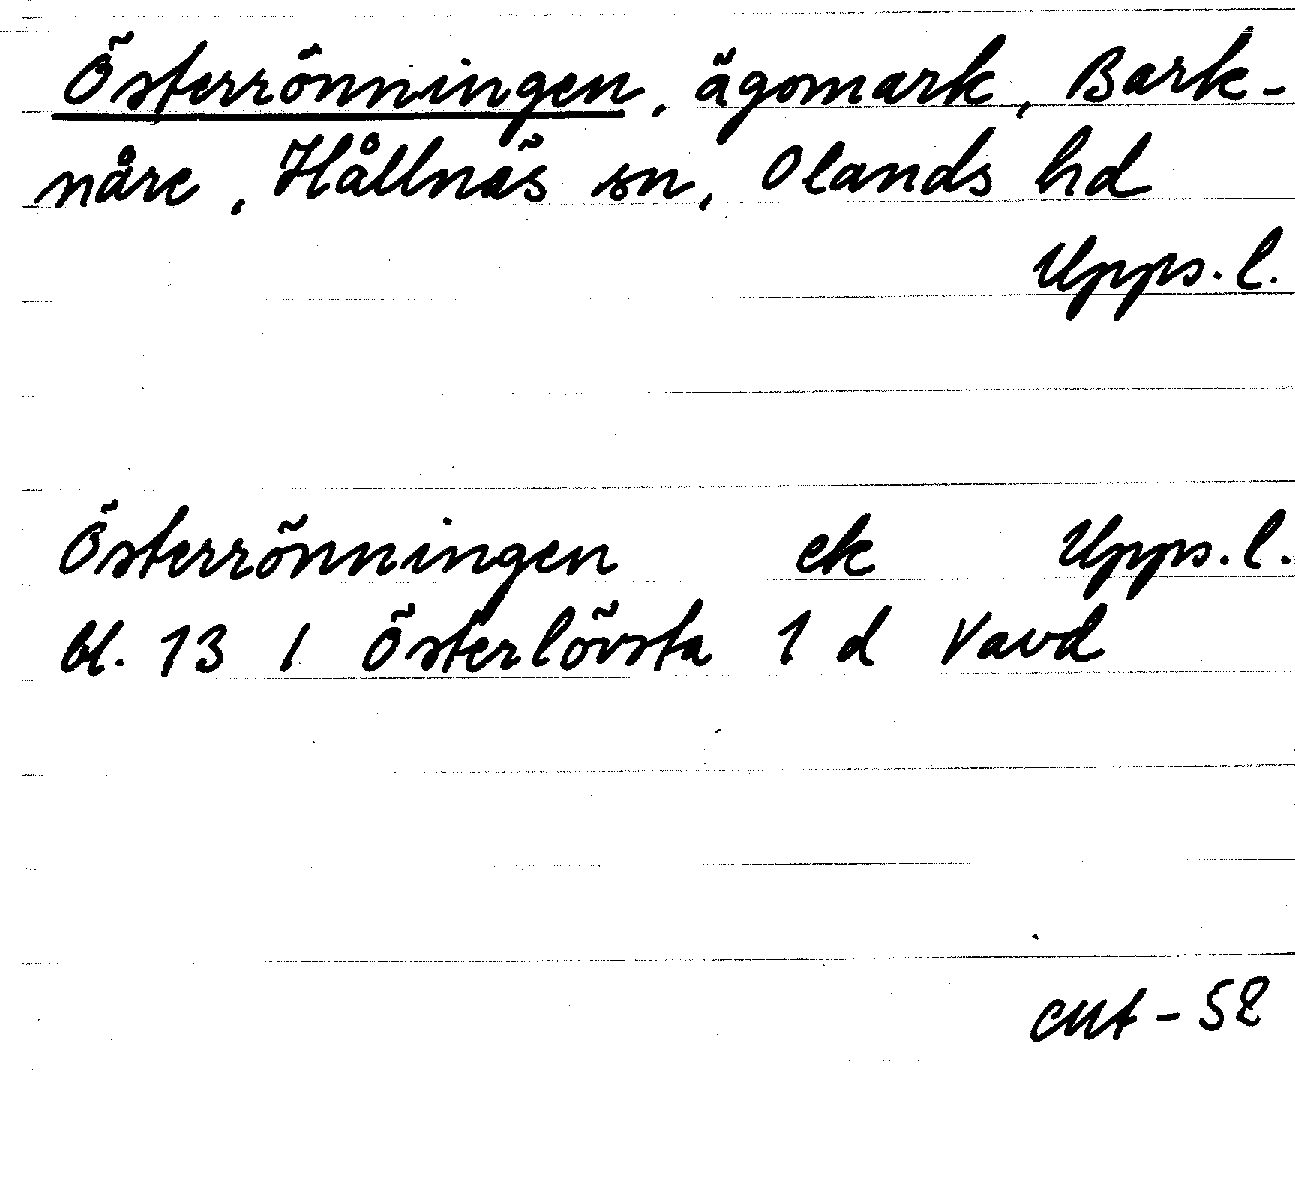 Österrönningen, ägomark, Bark-
nåre, Hållnäs sn, Olands hd
Upps. l.
Österrönningen ek Upps. l.
bl. 13 1 Österlövsta 1 d Vavd
- 52